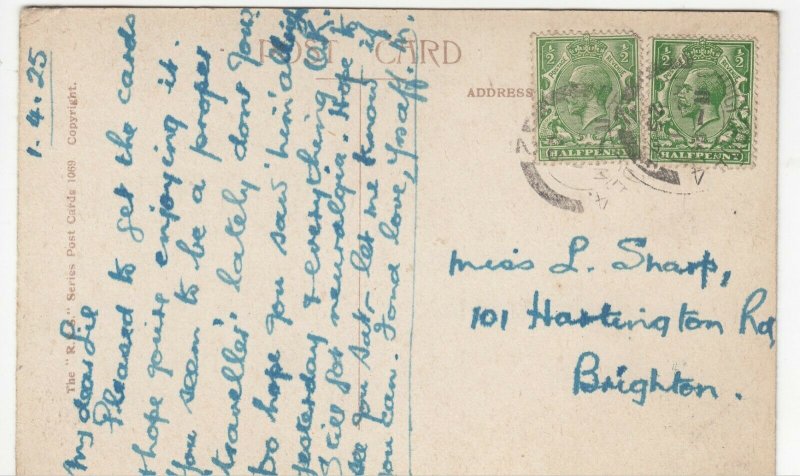 POST CARD
ADDRESS
1/2 1/2
HALFPENNY
1/2 1/2
HALFPENNY
The "R.P.S." Series Post Cards 1069 Copyright.
1.4.25
My dear Lil
Pleased to get the cards
& hope you're enjoying it.
You seem to be a proper
'traveller' lately dont you?
Do hope you saw 'him' alright
yesterday & everything O.K.
Still got neuralgia. Hope to
see you sat - let me know if
you can. Fond love,
Miss L. Sharp,
101 Hartington Rd,
Brighton.